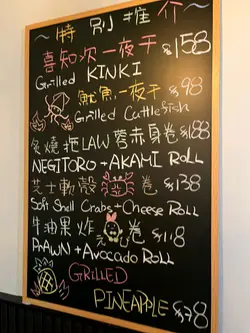 ~特別推介~
喜知次一夜干 $158
Grilled KINKI
魷魚一夜干 $98
Grilled Cuttlefish
炙燒拖LAW蓉赤身卷 $188
NEGITORO + AKAMI ROLL
芝士軟殼蟹卷 $138
Soft Shell Crabs + Cheese ROLL
牛油果炸卷 $118
PRAWN + Avocado ROLL
GRILLED
PINEAPPLE $78